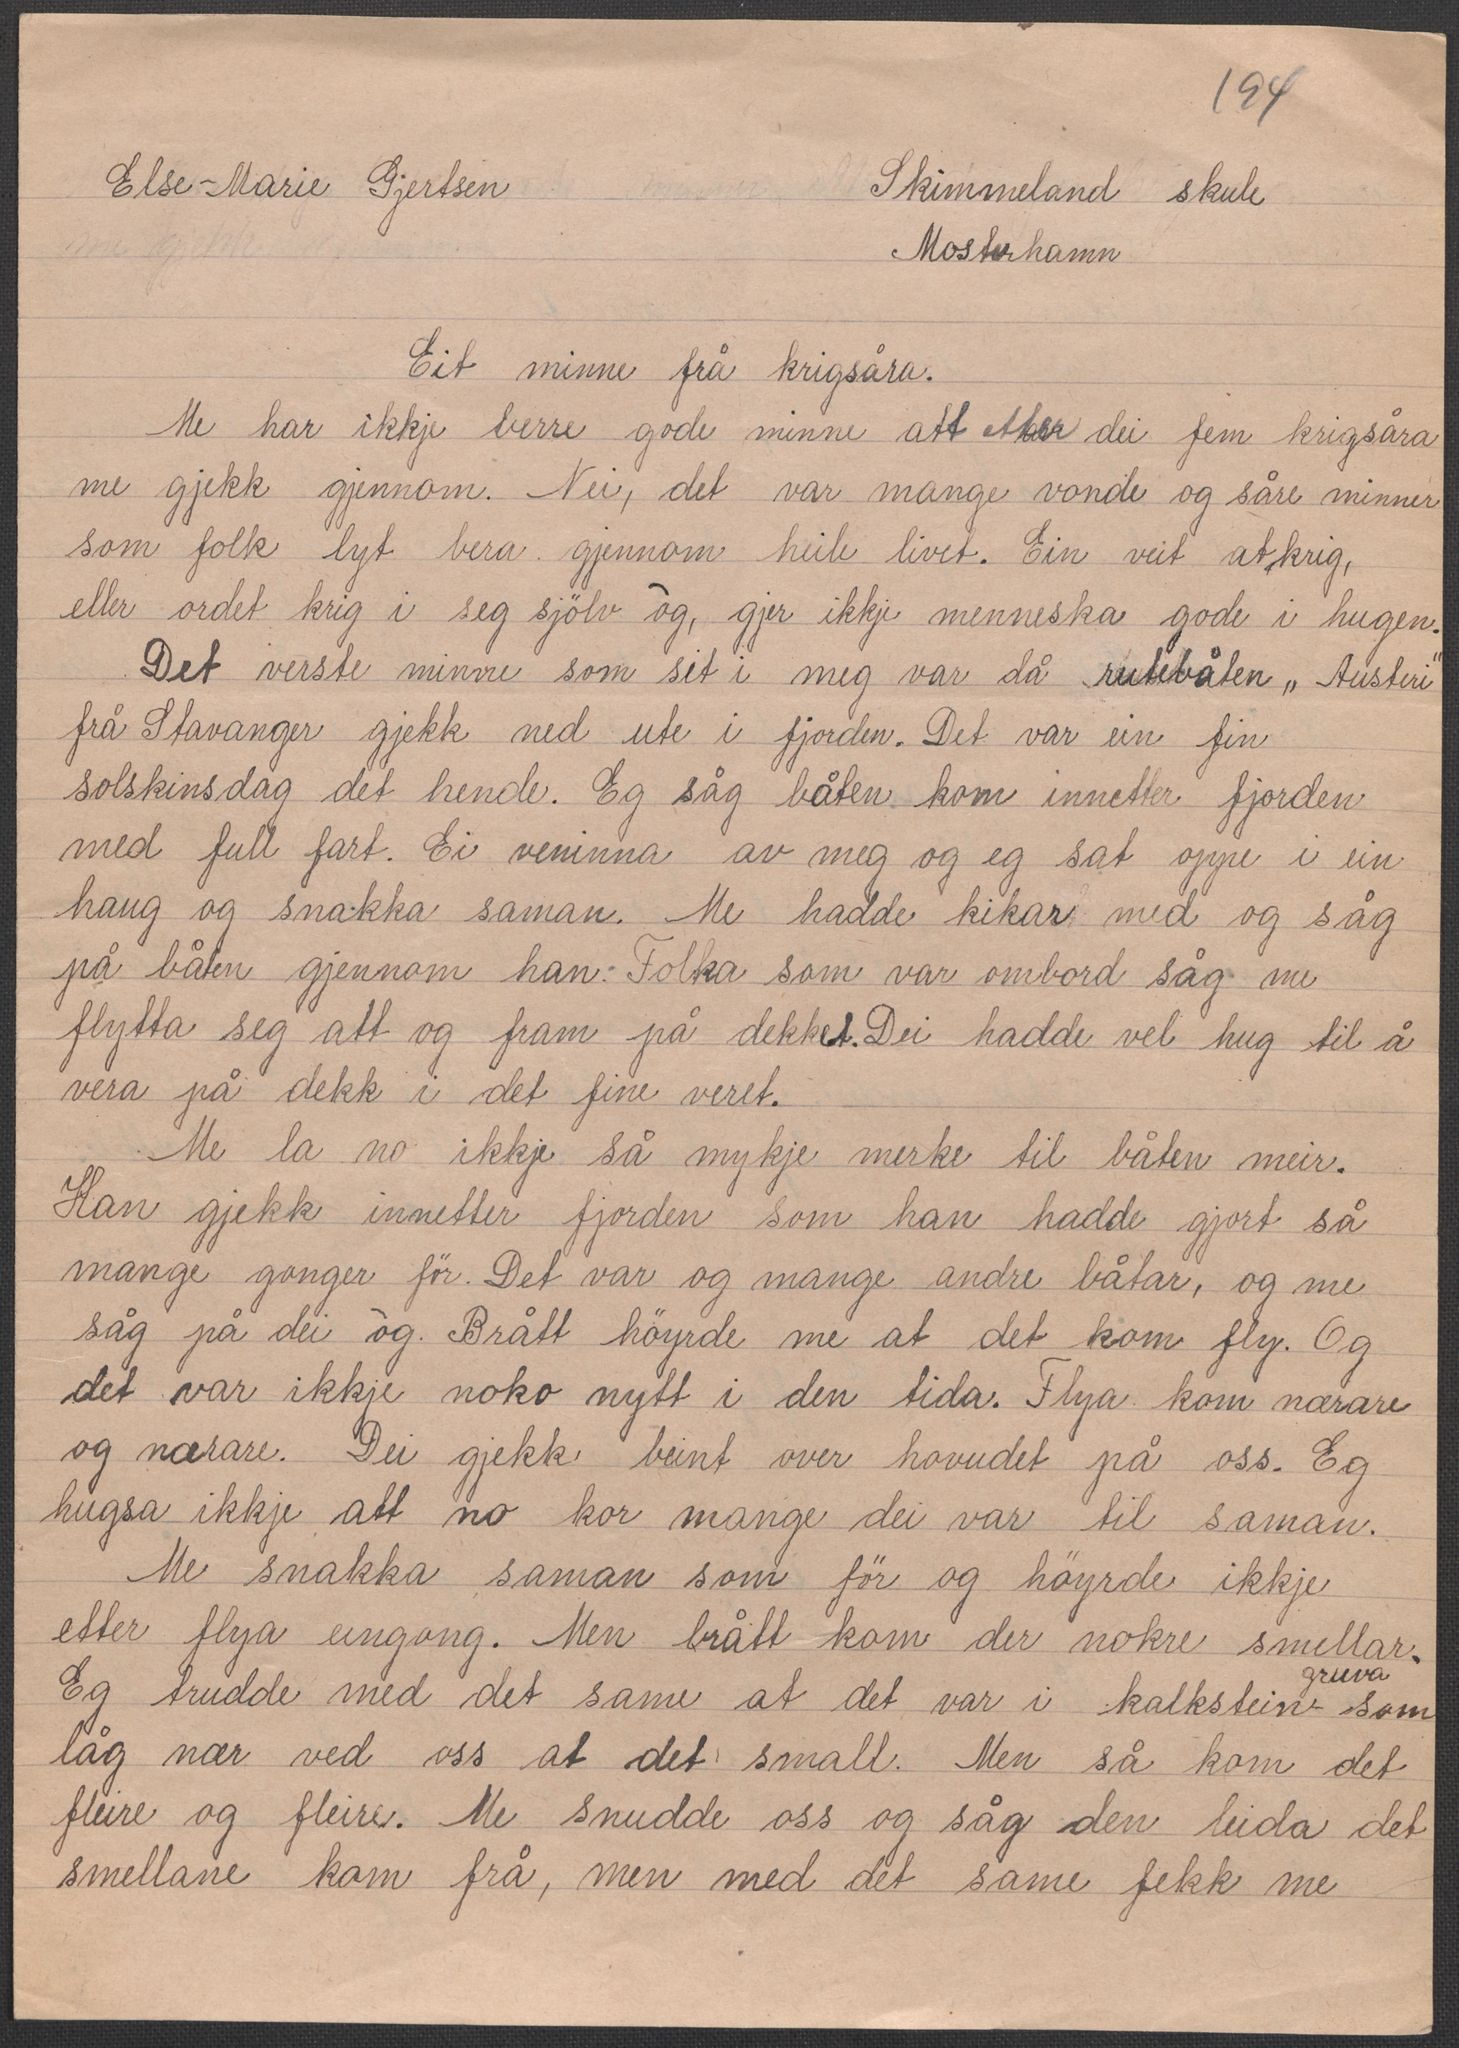 194
Else-Marie Gjertsen Skimmeland skule
Mosterhamn
Eit minne frå krigsåra.
Me har ikkje berre gode minne att etter dei fem krigsåra
me gjekk gjennom. Nei, det var mange vonde og såre minner
som folk lyt bera gjennom heile livet. Ein veit at krig,
eller ordet krig i seg sjölv òg, gjer ikkje menneska gode i hugen.
Det verste minne som sit i meg var då rutebåten „Austri"
frå Stavanger gjekk ned ute i fjorden. Det var ein fin
solskinsdag det hende. Eg såg båten kom innetter fjorden
med full fart. Ei veninna av meg og eg sat oppe i ein
haug og snakka saman. Me hadde kikar med og såg
på båten gjennom han. Folka som var ombord såg me
flytta seg att og fram på dekket. Dei hadde vel hug til å
vera på dekk i det fine veret.
Me la no ikkje så mykje merke til båten meir.
Han gjekk innetter fjorden som han hadde gjort så
mange gonger för. Det var og mange andre båtar, og me
såg på dei òg. Brått höyrde me at det kom fly. Og
det var ikkje noko nytt i den tida. Flya kom nærare
og nærare. Dei gjekk beint over hovudet på oss. Eg
hugsa ikkje att no kor mange dei var til saman.
Me snakka saman som för og höyrde ikkje
etter flya eingong. Men brått kom der nokre smellar.
Eg trudde med det same at det var i kalkstein-gruva som
låg nær ved oss at det small. Men så kom det
fleire og fleire. Me snudde oss og såg den leida det
smellane kom frå, men med det same fekk me